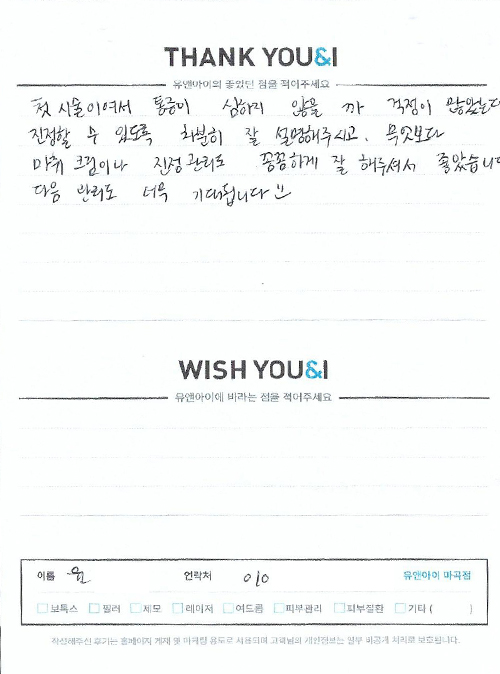 THANK YOU&I
유앤아이의 좋았던 점을 적어주세요
첫 시술이여서 통증이 심하지 않을 까 걱정이 많았는데
진정할 수 있도록 차분히 잘 설명해주시고, 무엇보다
마취 크림이나 진정관리도 꼼꼼하게 잘 해주셔서 좋았습니다
다음 관리도 너무 기대됩니다
WISH YOU&I
유앤아이에 바라는 점을 적어주세요
이름 연락처 010 유앤아이 마곡점
보톡스 필러 제모 레이저 여드름 피부관리 피부질환 기타 ( )
작성해주신 후기는 홈페이지 게재 및 마케팅 용도로 사용되며 고객님의 개인정보는 일부 비공개 처리로 보호됩니다.